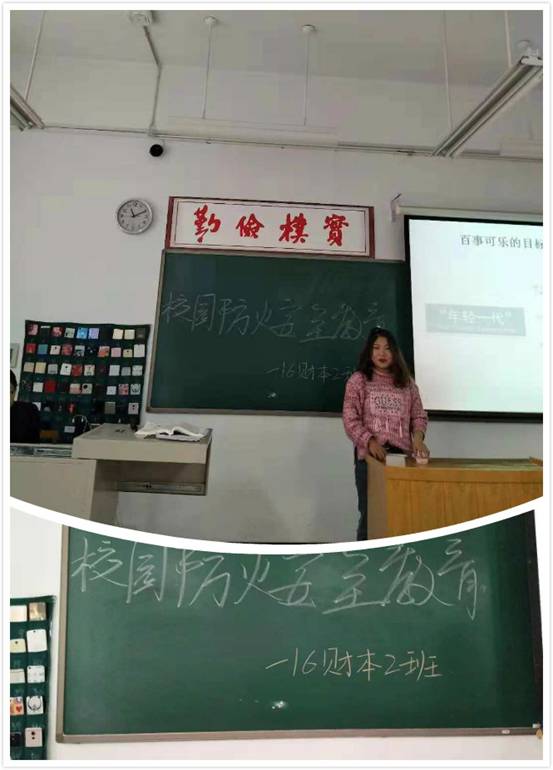 勤儉樸實
百事可乐的目标
"年轻一代"
校园防火安全教育
一16财本2班
GUESS
校园防火安全教育
一16财本2班